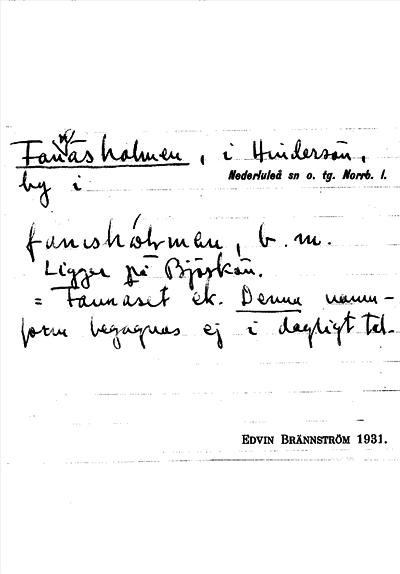 Fannäsholmen, i Hindersön,
by i
Nederluleå sn o. tg. Norrb. l.
b. m.
Ligger på Björkön.
= Fannäset ek. Denna namn-
form begagnas ej i dagligt tal.
EDVIN BRÄNNSTRÖM 1931.